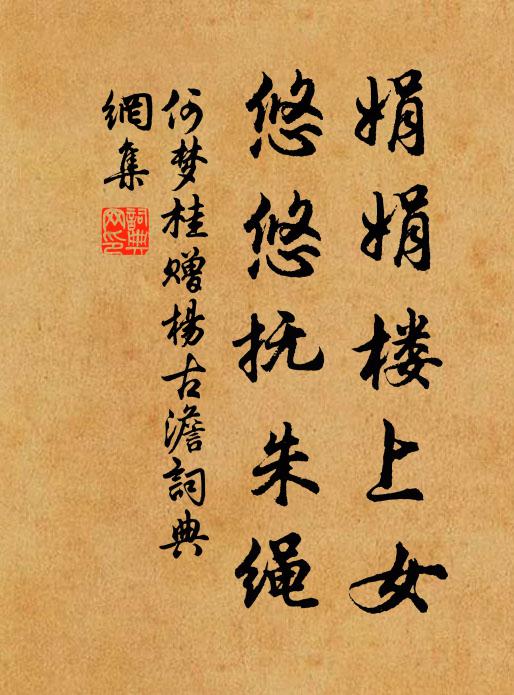 娟娟楼上女
悠悠抚朱绳
何梦桂赠杨古澹詞典
網集
詞典
网印